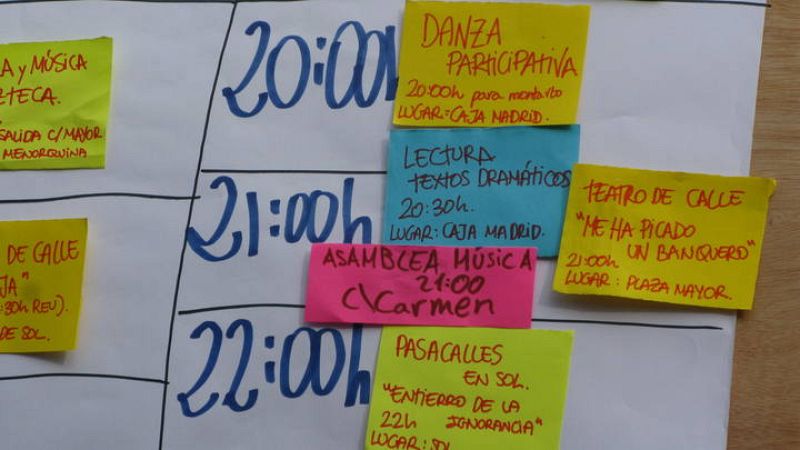 A y MÚSICA
TECA.
SALIDA C/MAYOR
MENORQUINA
DE CALLE
JA"
:30h REU).
DE SOL.
20:00h
DANZA
PARTICIPATIVA
20:00h para montarlo
LUGAR: CAJA MADRID.
LECTURA
TEXTOS DRAMÁTICOS
20:30h.
LUGAR: CAJA MADRID.
21:00h
TEATRO DE CALLE
"ME HA PICADO
UN BANQUERO"
21:00h
LUGAR: PLAZA MAYOR.
ASAMBLEA MÚSICA
21:00
C\Carmen
22:00h
PASACALLES
EN SOL.
"ENTIERRO DE LA
22h IGNORANCIA"
LUGAR: SOL